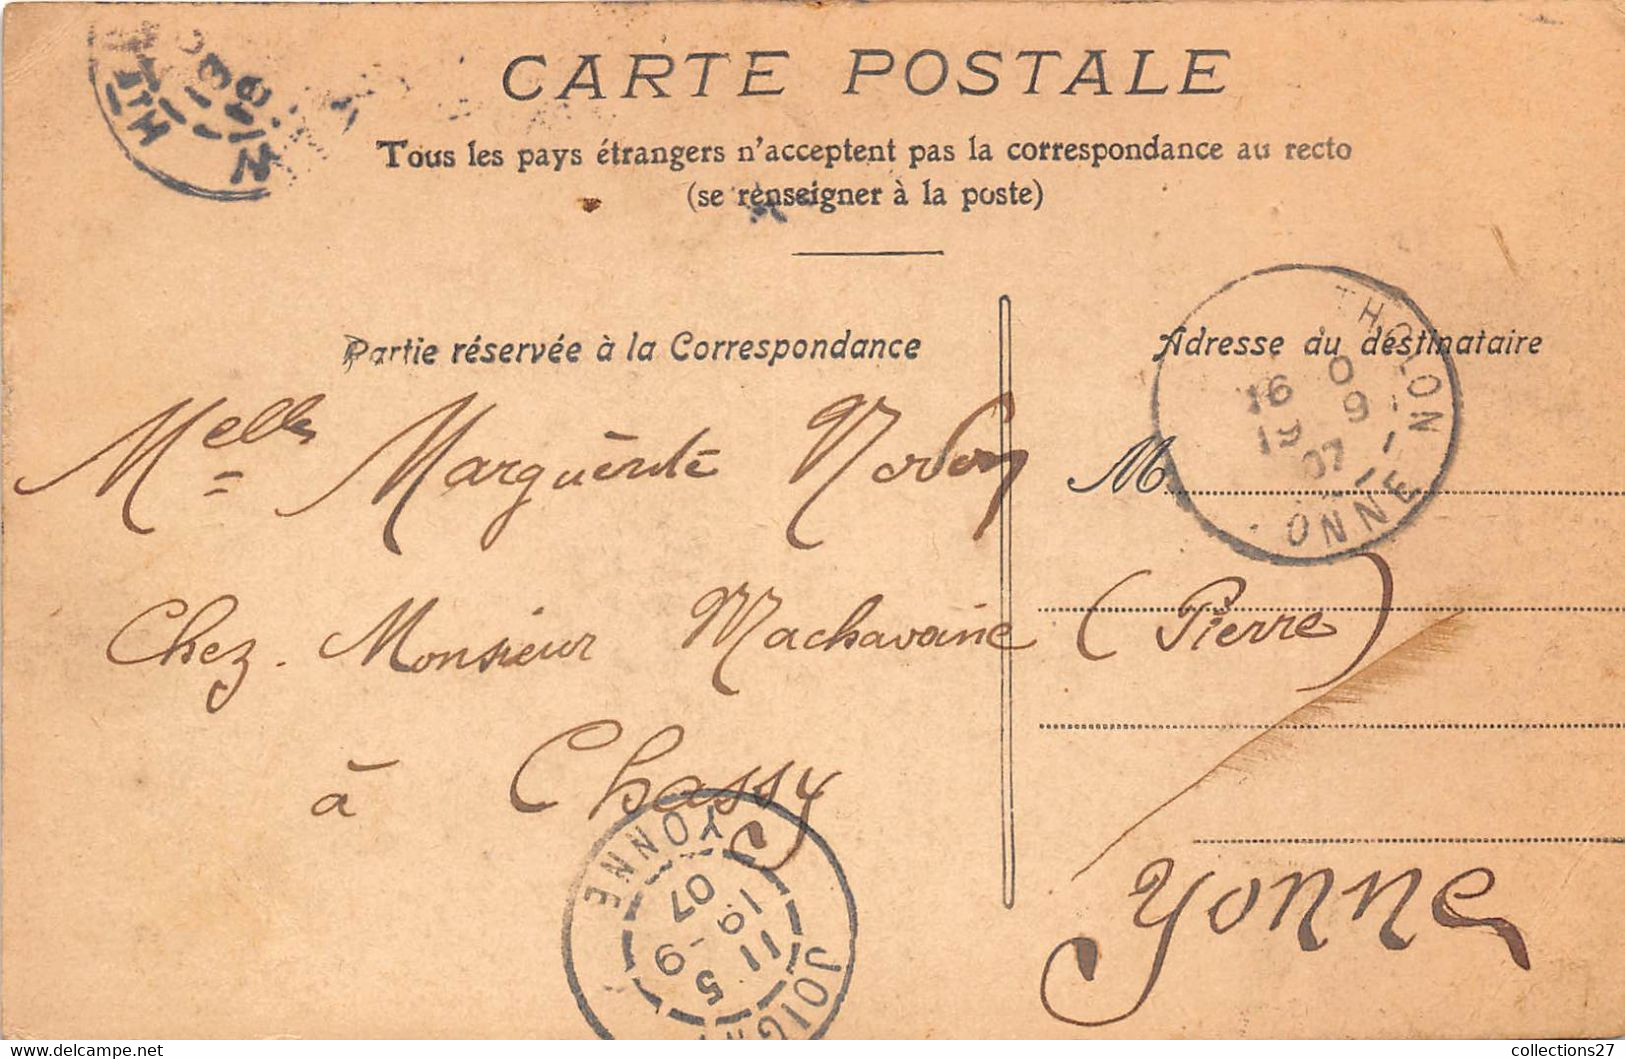 CARTE POSTALE
Tous les pays étrangers n'acceptent pas la correspondance au recto
(se renseigner à la poste)
Partie réservée à la Correspondance
Adresse du destinataire
THOLON
16 0
19 9
07
YONNE
M
Melle Marguerite
Chez Monsieur Machavoine (Pierre)
à Chassy
Yonne
YONNE
07
19
11
5 9
JOIG
collections27